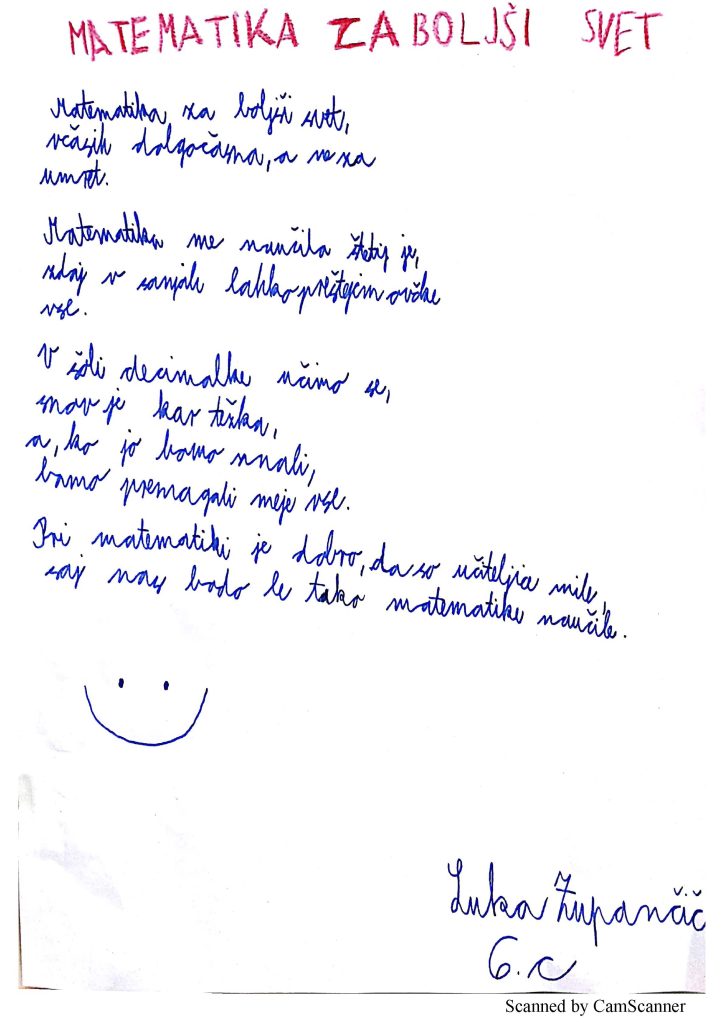 MATEMATIKA ZA BOLJŠI SVET
Matematika za boljši svet,
včasih dolgočasna, a ne za
umret.
Matematika me naučila štetij je,
zdaj v sanjah lahko preštejem ovčke
vse.
V šoli decimalke učimo se,
snov je kar težka,
a, ko jo bomo znali,
bomo premagali meje vse.
Pri matematiki je dobro, da so učiteljice mile,
saj nas bodo le tako matematike naučile.
Luka Župančič
6. c
Scanned by CamScanner